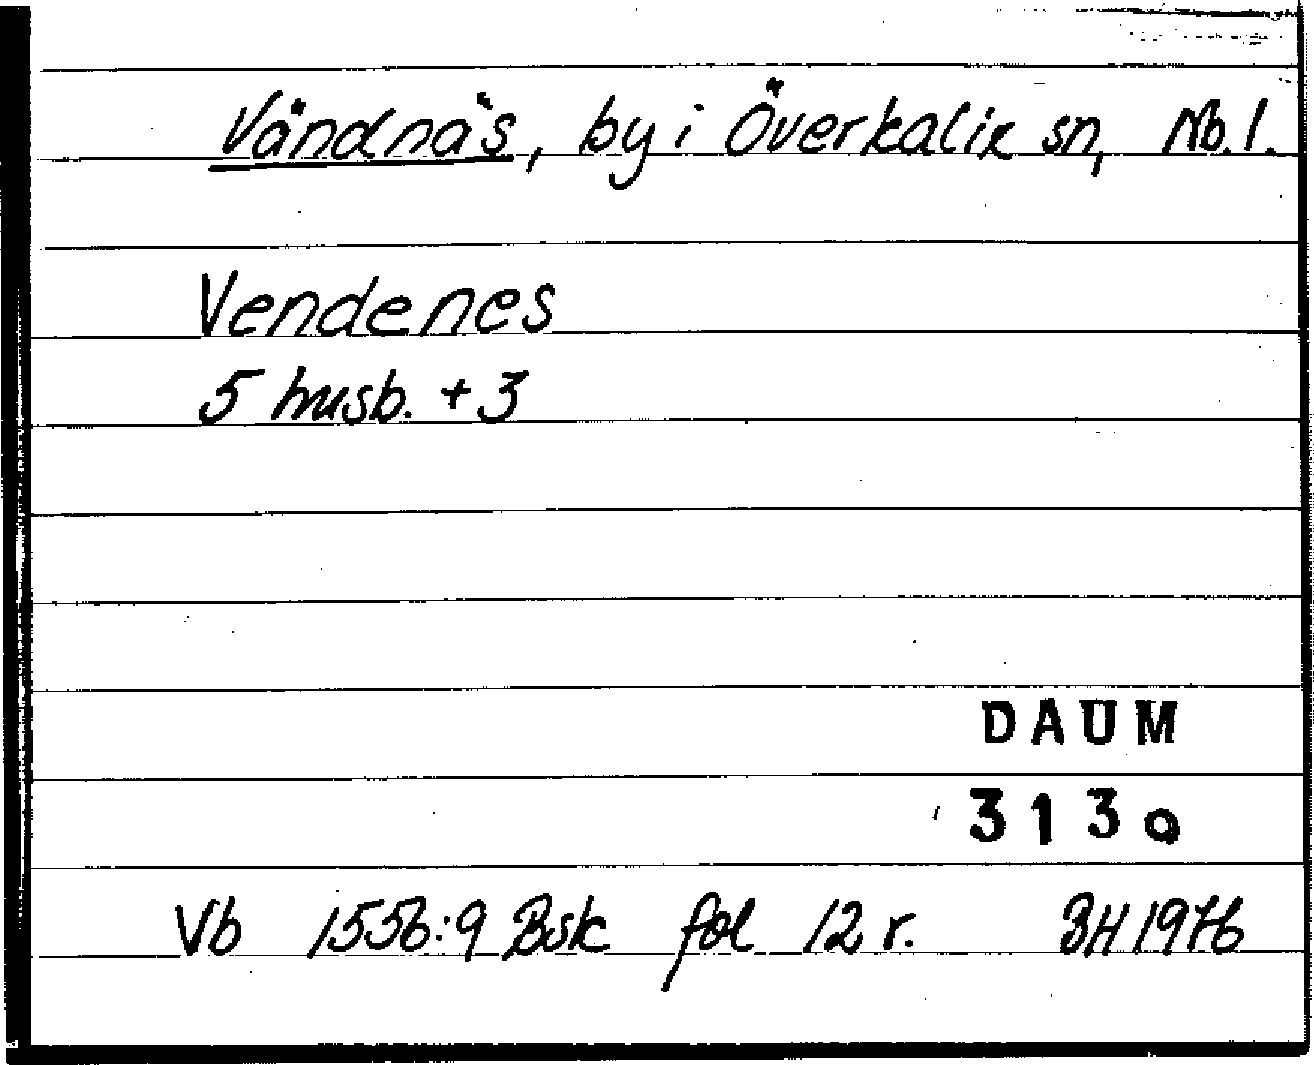 Vändnäs, by i Överkalix sn, Nb.l.
Vendenes
5 husb. + 3
DAUM
3130
Vb 1556:9 Bsk fol 12 r. BH 1976